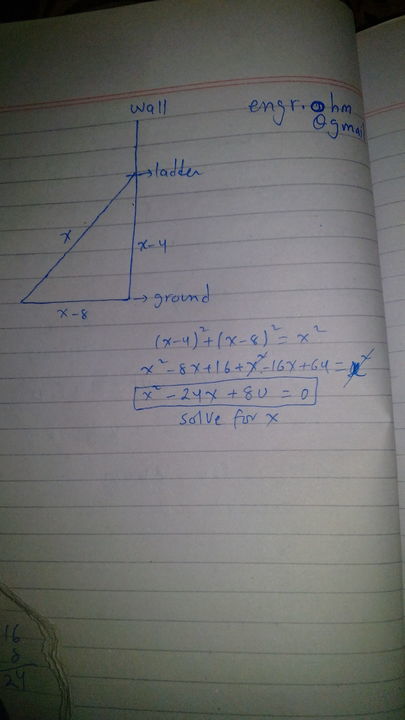 wall
engr. ohm
@gmai
→ladder
x
x-4
x-8
→ground
(x-4)²+(x-8)² = x²
x²-8x+16+x²-16x+64 = x²
x²-24x+80 = 0
solve for x
16
8
24